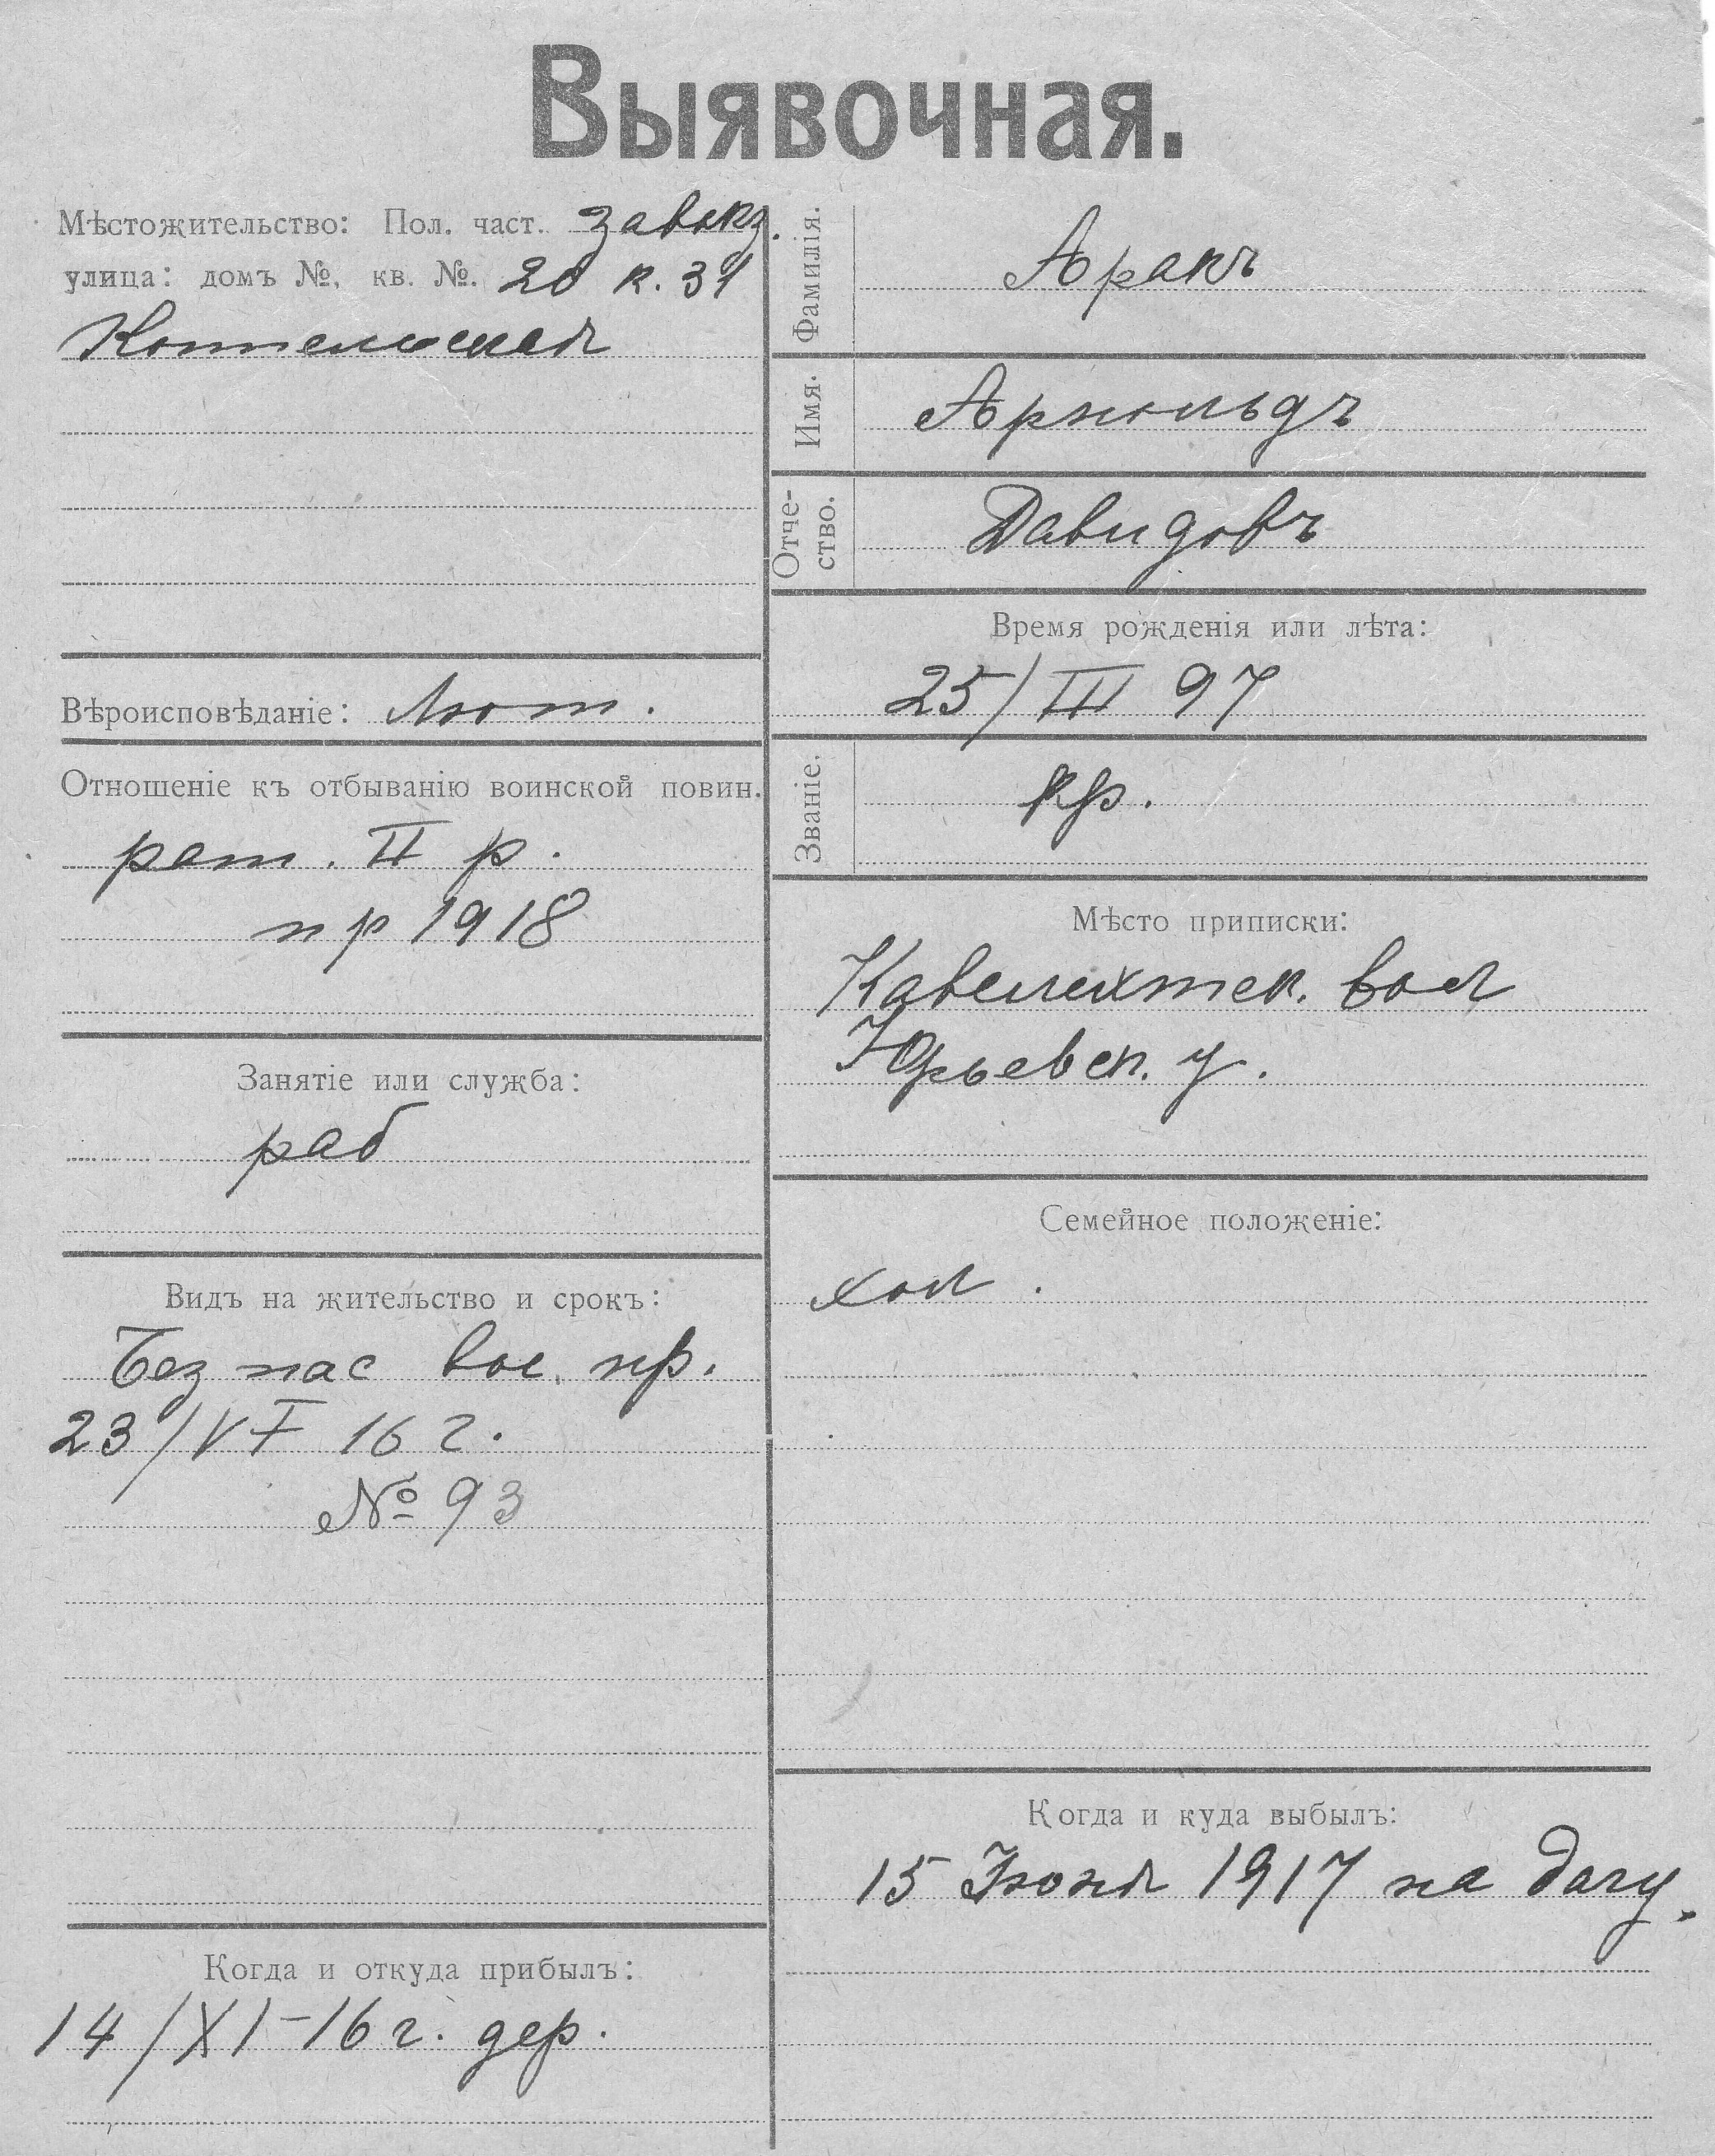 Выявочная.
Мѣстожительство: Пол. част. Завокз.
улица: домъ №, кв. №. 20 к. 31
Коппельская
Вѣроисповѣданіе: Лют.
Отношеніе къ отбыванію воинской повин.
рат. II р.
пр 1918
Занятіе или служба:
раб
Видъ на жительство и срокъ:
Без пас вое. пр.
23/VI 16 г.
№ 93
Когда и откуда прибылъ:
14/XI-16 г. дер.
Фамилія.
Аракъ
Имя.
Арнольдъ
Отче-
ство.
Давидовъ
Время рожденія или лѣта:
25/III 97
Званіе.
кр.
Мѣсто приписки:
Кавелехтск. вол
Юрьевск. у.
Семейное положеніе:
хол.
Когда и куда выбылъ:
15 Июня 1917 на дачу.